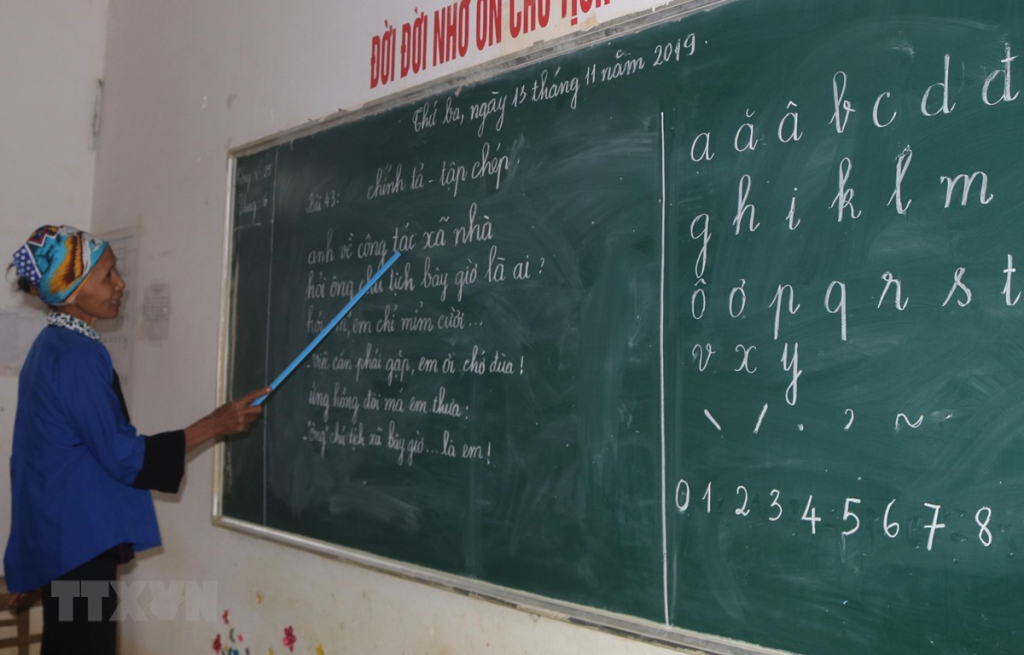 ĐỜI ĐỜI NHỚ ƠN CHỦ TỊCH
Thứ ba, ngày 13 tháng 11 năm 2019.
Bài 43: chính tả - tập chép.
anh về công tác xã nhà
hỏi ông chủ tịch bây giờ là ai?
em chỉ mỉm cười...
- việc cần phải gặp, em ơi chớ đùa!
ửng hồng đôi má em thưa:
- "Ông" chủ tịch xã bây giờ...là em!
a ă â b c d đ
g h i k l m
ô ơ p q r s t
v x y
\ / . ̉ ~
0 1 2 3 4 5 6 7 8
TTXVN